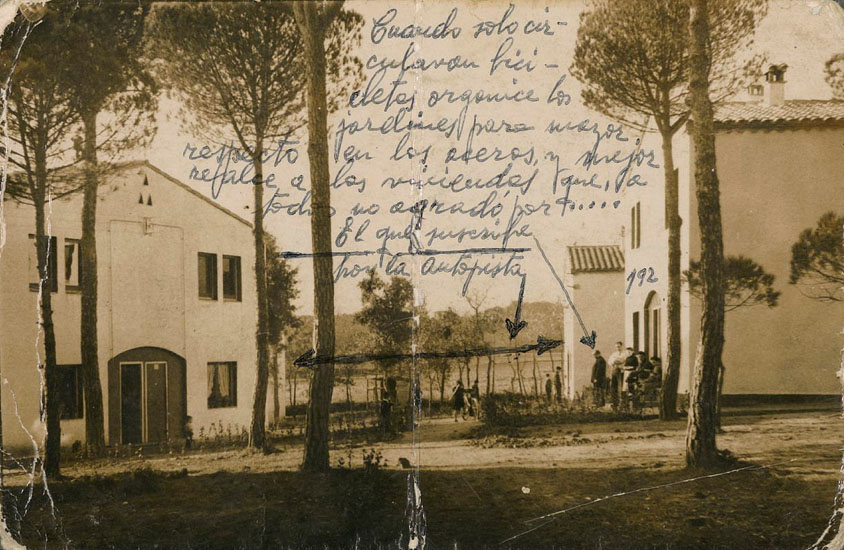 Cuando solo cir-
culavan bici-
cletas organice los
jardines para mazor
respecto en los aceros, y mejor
refalce a las viviendas que, a
todos no agradó por......
El que suscribe
por la autopista
192